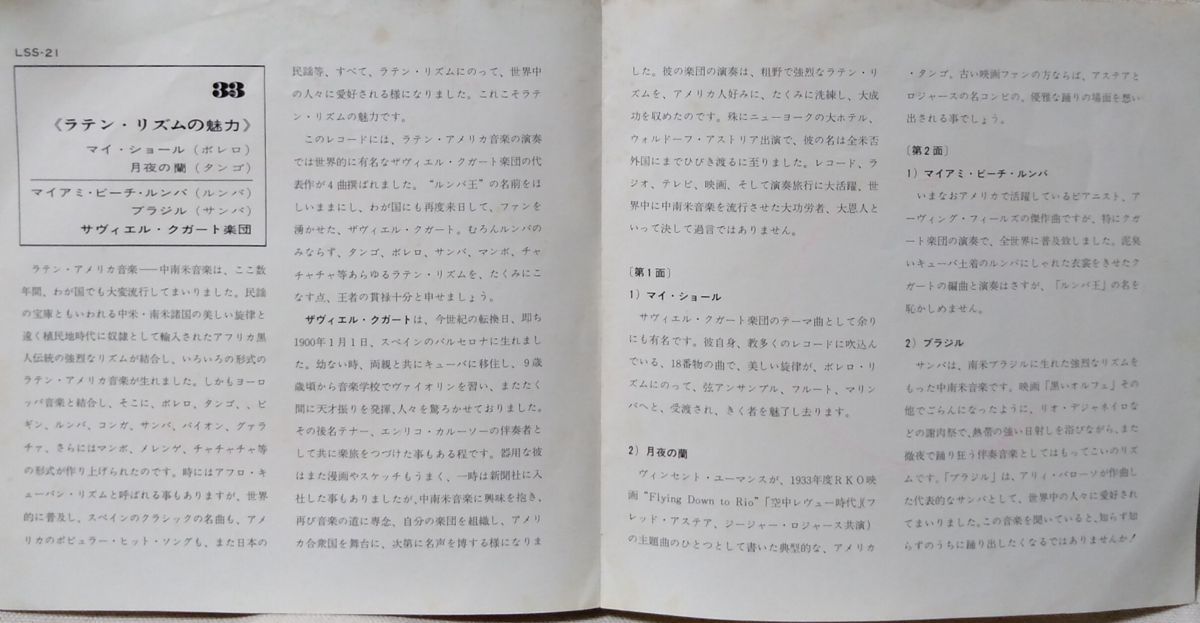 LSS-21
33
《ラテン・リズムの魅力》
マイ・ショール（ボレロ）
月夜の蘭（タンゴ）
マイアミ・ビーチ・ルンバ（ルンバ）
ブラジル（サンバ）
サヴィエル・クガート楽団
ラテン・アメリカ音楽――中南米音楽は、ここ数
年間、わが国でも大変流行してまいりました。民謡
の宝庫ともいわれる中米・南米諸国の美しい旋律と
遠く植民地時代に奴隷として輸入されたアフリカ黒
人伝統の強烈なリズムが結合し、いろいろの形式の
ラテン・アメリカ音楽が生れました。しかもヨーロ
ッパ音楽と結合し、そこに、ボレロ、タンゴ、、ビ
ギン、ルンバ、コンガ、サンバ、バイオン、グァラ
チャ、さらにはマンボ、メレンゲ、チャチャチャ等
の形式が作り上げられたのです。時にはアフロ・キ
ューバン・リズムと呼ばれる事もありますが、世界
的に普及し、スペインのクラシックの名曲も、アメ
リカのポピュラー・ヒット・ソングも、また日本の
民謡等、すべて、ラテン・リズムにのって、世界中
の人々に愛好される様になりました。これこそラテ
ン・リズムの魅力です。
このレコードには、ラテン・アメリカ音楽の演奏
では世界的に有名なザヴィエル・クガート楽団の代
表作が4曲撰ばれました。“ルンバ王”の名前をほ
しいままにし、わが国にも再度来日して、ファンを
湧かせた、ザヴィエル・クガート。むろんルンバの
みならず、タンゴ、ボレロ、サンバ、マンボ、チャ
チャチャ等あらゆるラテン・リズムを、たくみにこ
なす点、王者の貫禄十分と申せましょう。
ザヴィエル・クガートは、今世紀の転換日、即ち
1900年1月1日、スペインのバルセロナに生れまし
た。幼ない時、両親と共にキューバに移住し、9歳
歳頃から音楽学校でヴァイオリンを習い、またたく
間に天才振りを発揮、人々を驚ろかせておりました。
その後名テナー、エンリコ・カルーソーの伴奏者と
して共に楽旅をつづけた事もある程です。器用な彼
はまた漫画やスケッチもうまく、一時は新聞社に入
社した事もありましたが、中南米音楽に興味を抱き、
再び音楽の道に専念、自分の楽団を組織し、アメリ
カ合衆国を舞台に、次第に名声を博する様になりま
した。彼の楽団の演奏は、粗野で強烈なラテン・リ
ズムを、アメリカ人好みに、たくみに洗練し、大成
功を収めたのです。殊にニューヨークの大ホテル、
ウォルドーフ・アストリア出演で、彼の名は全米否
外国にまでひびき渡るに至りました。レコード、ラ
ジオ、テレビ、映画、そして演奏旅行に大活躍、世
界中に中南米音楽を流行させた大功労者、大恩人と
いって決して過言ではありません。
〔第1面〕
1）マイ・ショール
サヴィエル・クガート楽団のテーマ曲として余り
にも有名です。彼自身、数多くのレコードに吹込ん
でいる、18番物の曲で、美しい旋律が、ボレロ・リ
ズムにのって、弦アンサンブル、フルート、マリン
バへと、受渡され、きく者を魅了し去ります。
2）月夜の蘭
ヴィンセント・ユーマンスが、1933年度RKO映
画“Flying Down to Rio”「空中レヴュー時代」（フ
レッド・アステア、ジージャー・ロジャース共演）
の主題曲のひとつとして書いた典型的な、アメリカ
・タンゴ、古い映画ファンの方ならば、アステアと
ロジャースの名コンビの、優雅な踊りの場面を想い
出される事でしょう。
〔第2面〕
1）マイアミ・ビーチ・ルンバ
いまなおアメリカで活躍しているピアニスト、ア
ーヴィング・フィールズの傑作曲ですが、特にクガ
ート楽団の演奏で、全世界に普及致しました。泥臭
いキューバ土着のルンバにしゃれた衣裳をきせたク
ガートの編曲と演奏はさすが、「ルンバ王」の名を
恥かしめません。
2）ブラジル
サンバは、南米ブラジルに生れた強烈なリズムを
もった中南米音楽です。映画「黒いオルフェ」その
他でごらんになったように、リオ・デジャネイロな
どの謝肉祭で、熱帯の強い日射しを浴びながら、また
徹夜で踊り狂う伴奏音楽としてはもってこいのリズ
ムです。「ブラジル」は、アリィ・バローソが作曲し
た代表的なサンバとして、世界中の人々に愛好され
てまいりました。この音楽を聞いていると、知らず知
らずのうちに踊り出したくなるではありませんか！